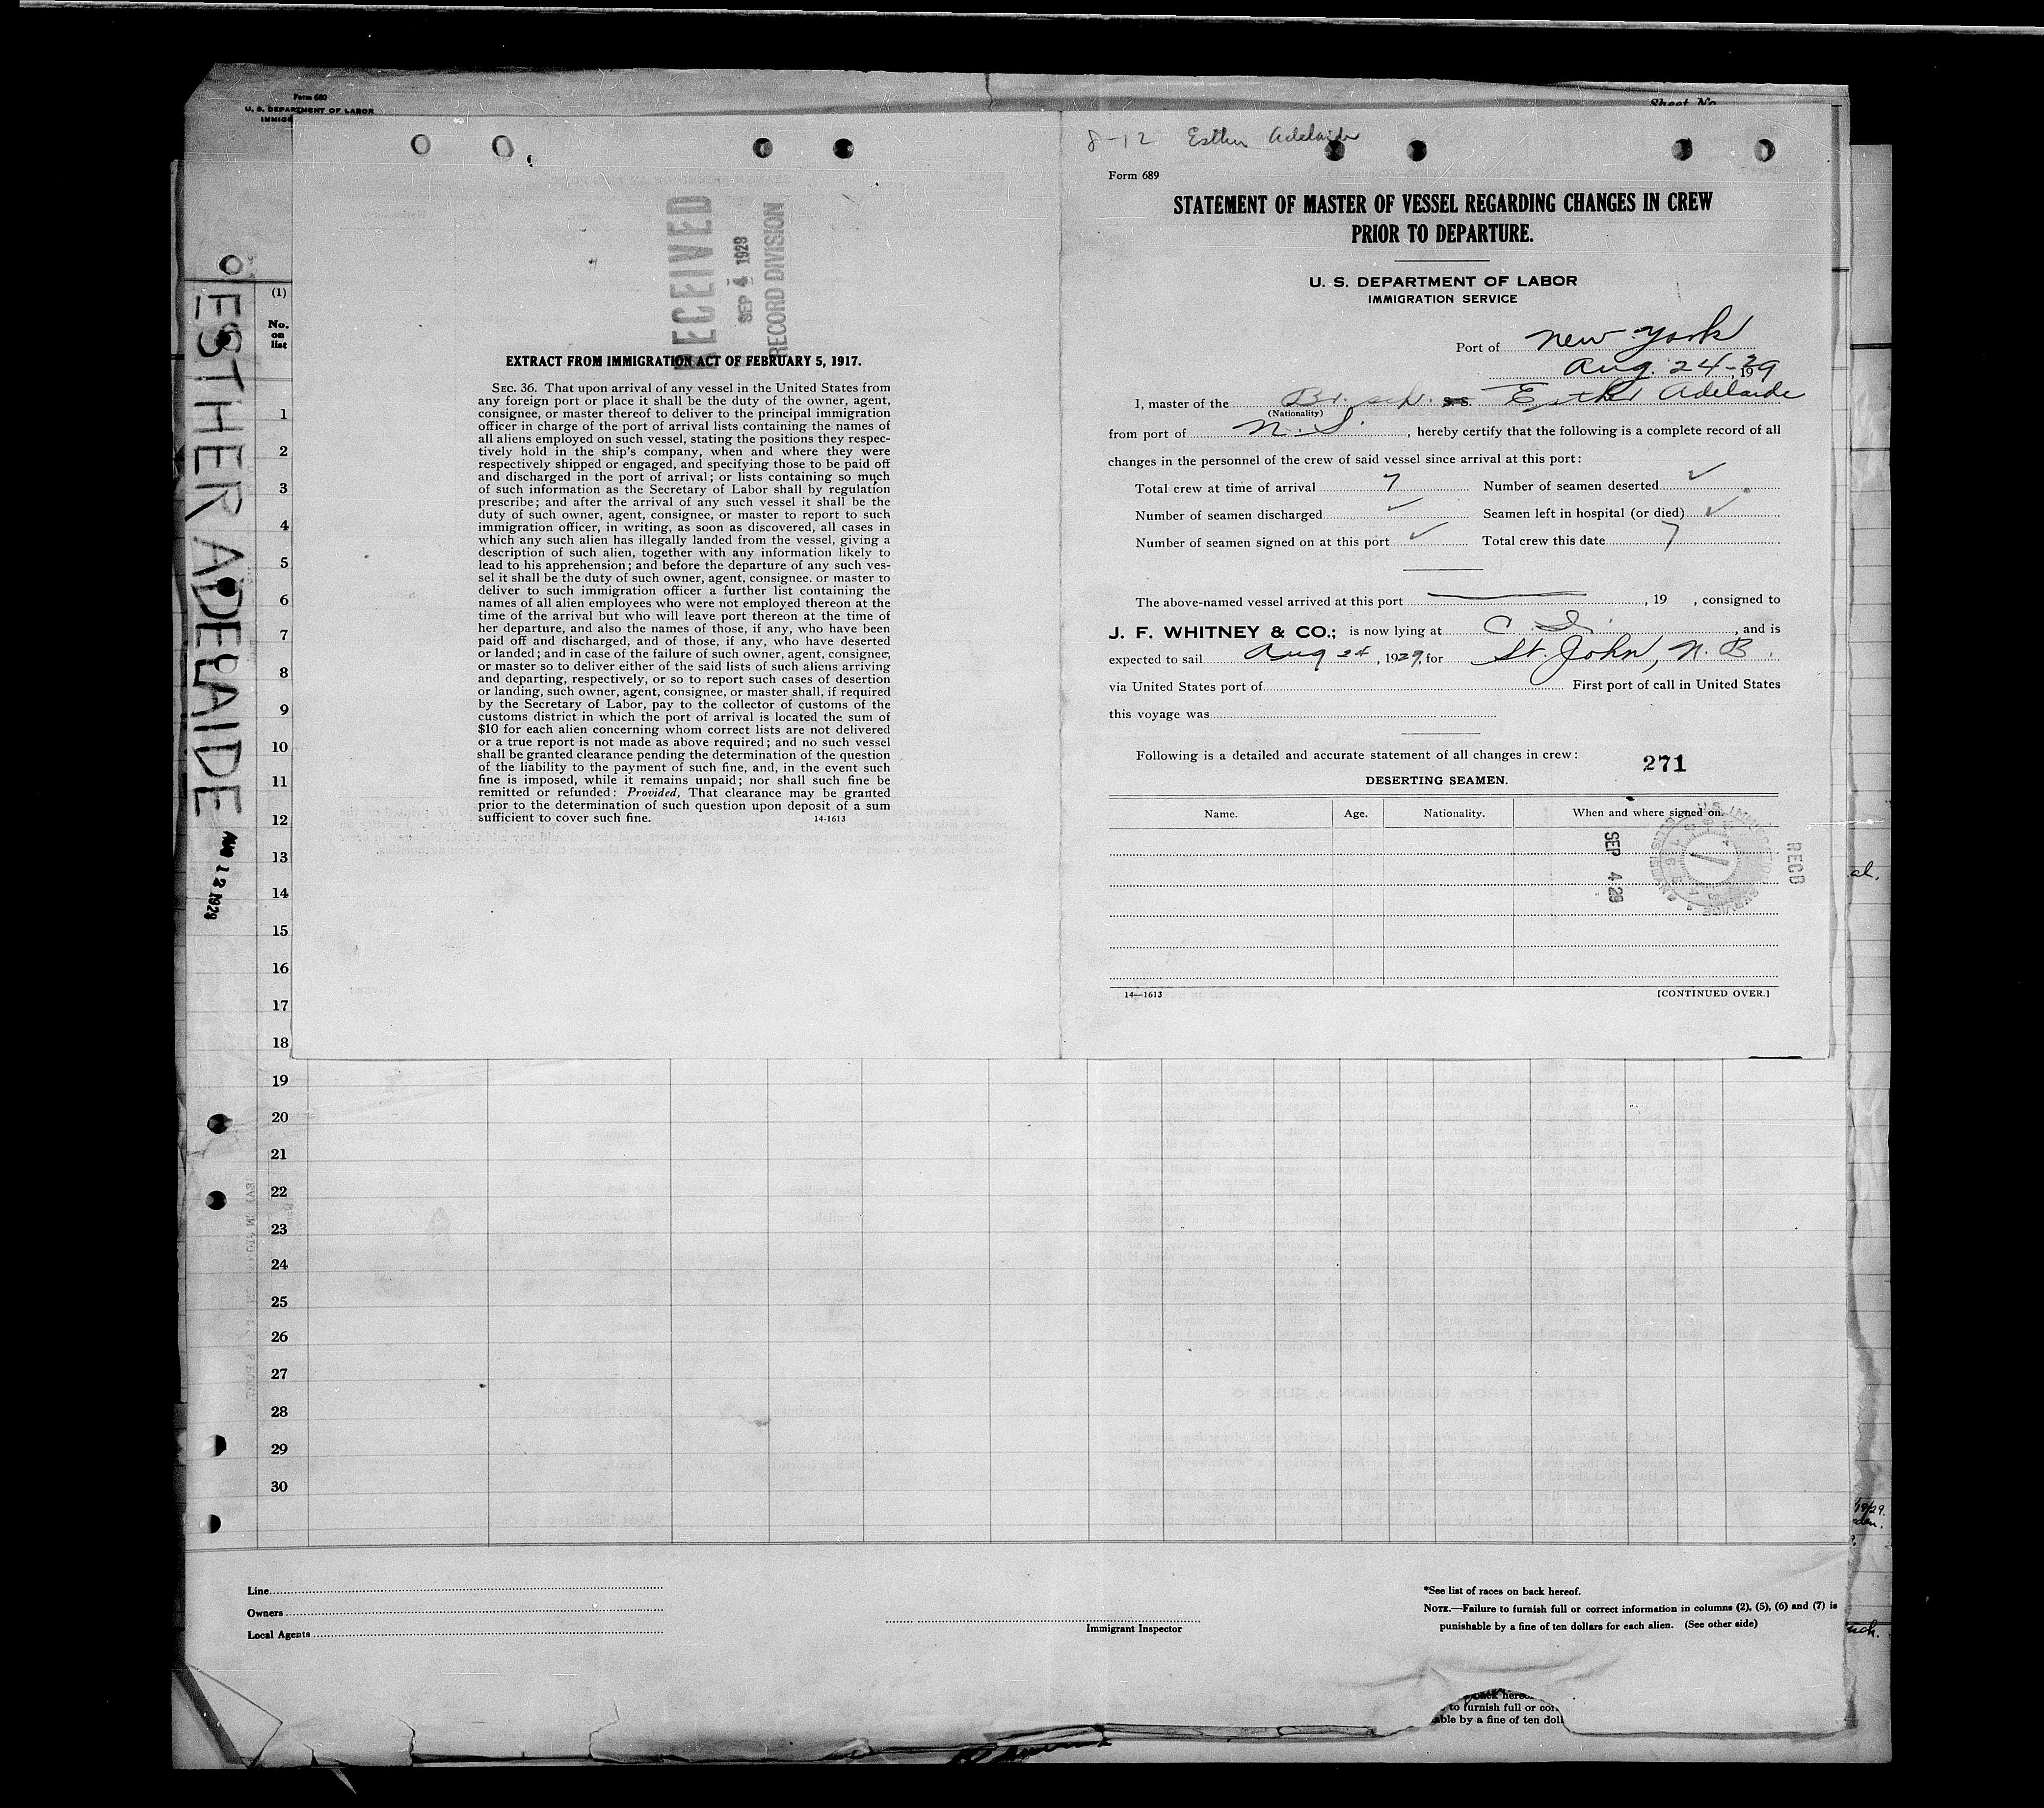 Form 680
U. S. DEPARTMENT OF LABOR
IMMIG
Sheet No
ESTHER ADELAIDE
AUG 12 1929
(1)
No.
on
list
1
2
3
4
5
6
7
8
9
10
11
12
13
14
15
16
17
18
19
20
21
22
23
24
25
26
27
28
29
30
RECEIVED
SEP 4 1929
RECORD DIVISION
EXTRACT FROM IMMIGRATION ACT OF FEBRUARY 5, 1917.
SEC. 36. That upon arrival of any vessel in the United States from
any foreign port or place it shall be the duty of the owner, agent,
consignee, or master thereof to deliver to the principal immigration
officer in charge of the port of arrival lists containing the names of
all aliens employed on such vessel, stating the positions they respec-
tively hold in the ship's company, when and where they were
respectively shipped or engaged, and specifying those to be paid off
and discharged in the port of arrival; or lists containing so much
of such information as the Secretary of Labor shall by regulation
prescribe; and after the arrival of any such vessel it shall be the
duty of such owner, agent, consignee, or master to report to such
immigration officer, in writing, as soon as discovered, all cases in
which any such alien has illegally landed from the vessel, giving a
description of such alien, together with any information likely to
lead to his apprehension; and before the departure of any such ves-
sel it shall be the duty of such owner, agent, consignee. or master to
deliver to such immigration officer a further list containing the
names of all alien employees who were not employed thereon at the
time of the arrival but who will leave port thereon at the time of
her departure, and also the names of those, if any, who have been
paid off and discharged, and of those, if any, who have deserted
or landed; and in case of the failure of such owner, agent, consignee,
or master so to deliver either of the said lists of such aliens arriving
and departing, respectively, or so to report such cases of desertion
or landing, such owner, agent, consignee, or master shall, if required
by the Secretary of Labor, pay to the collector of customs of the
customs district in which the port of arrival is located the sum of
$10 for each alien concerning whom correct lists are not delivered
or a true report is not made as above required; and no such vessel
shall be granted clearance pending the determination of the question
of the liability to the payment of such fine, and, in the event such
fine is imposed, while it remains unpaid; nor shall such fine be
remitted or refunded: Provided, That clearance may be granted
prior to the determination of such question upon deposit of a sum
sufficient to cover such fine. 14-1613
8-12 Esther Adelaide
Form 689
STATEMENT OF MASTER OF VESSEL REGARDING CHANGES IN CREW
PRIOR TO DEPARTURE.
U. S. DEPARTMENT OF LABOR
IMMIGRATION SERVICE
Port of New York
Aug. 24-, 1929
I, master of the Br. sch. SS. Esther Adelaide
(Nationality)
from port of N. S., hereby certify that the following is a complete record of all
changes in the personnel of the crew of said vessel since arrival at this port:
Total crew at time of arrival 7 Number of seamen deserted ✓
Number of seamen discharged ✓ Seamen left in hospital (or died) ✓
Number of seamen signed on at this port ✓ Total crew this date 7
The above-named vessel arrived at this port , 19 , consigned to
J. F. WHITNEY & CO.; is now lying at C. I. , and is
expected to sail Aug 24, 1929, for St. John, N. B.
via United States port of First port of call in United States
this voyage was
Following is a detailed and accurate statement of all changes in crew:
271
DESERTING SEAMEN.
Name. Age. Nationality. When and where signed on.
SEP 4 29
RECD
14—1613 [CONTINUED OVER.]
al.
Line
Owners
Local Agents
Immigrant Inspector
*See list of races on back hereof.
NOTE.—Failure to furnish full or correct information in columns (2), (5), (6) and (7) is
punishable by a fine of ten dollars for each alien. (See other side)
back hereo
to furnish full or corr
able by a fine of ten doll